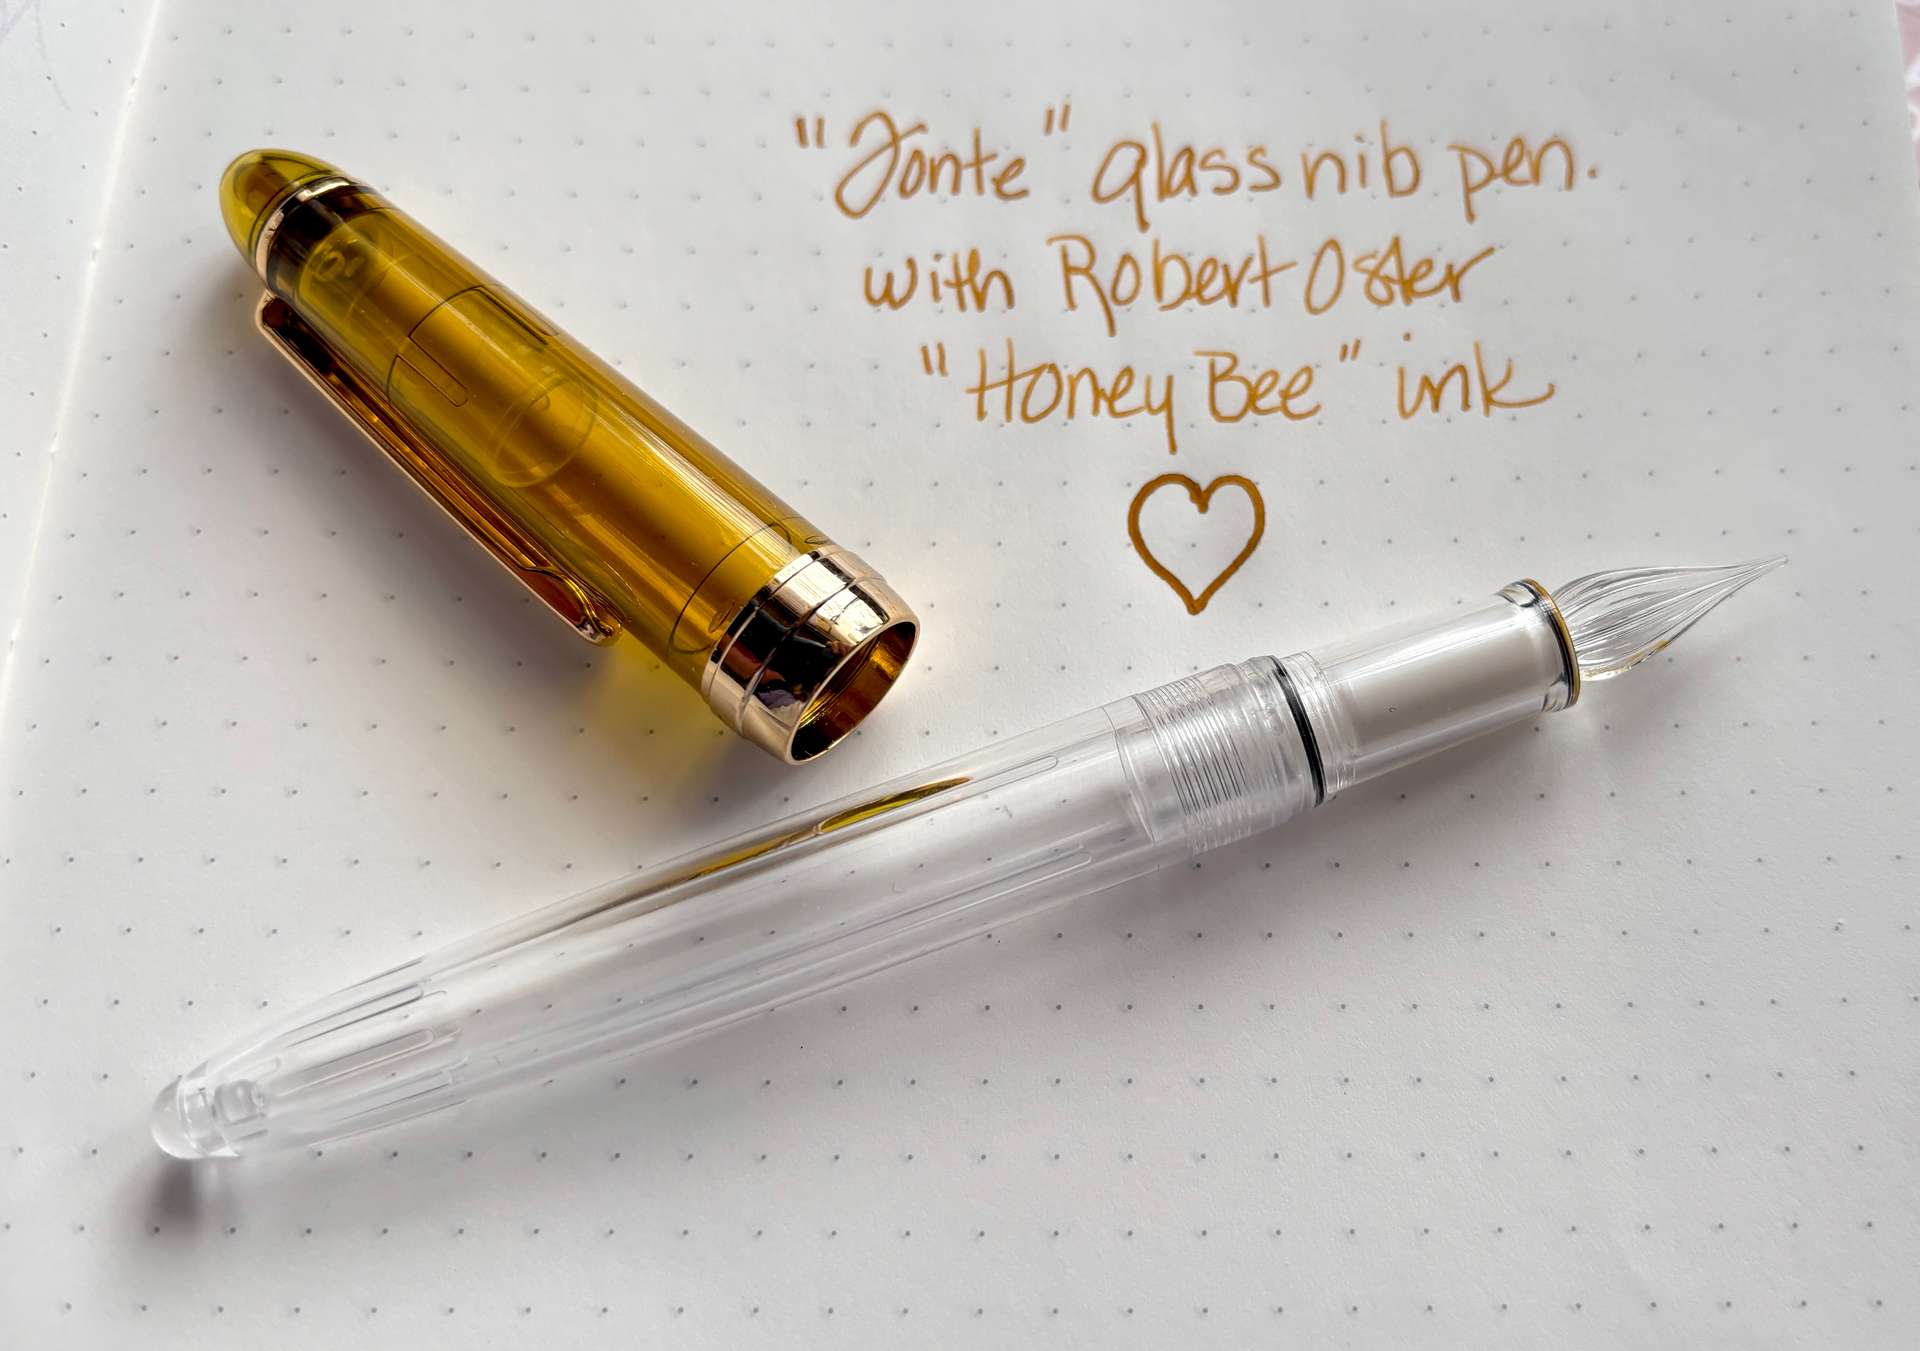 "Jonte" glass nib pen.
with Robert Oster
"Honey Bee" ink